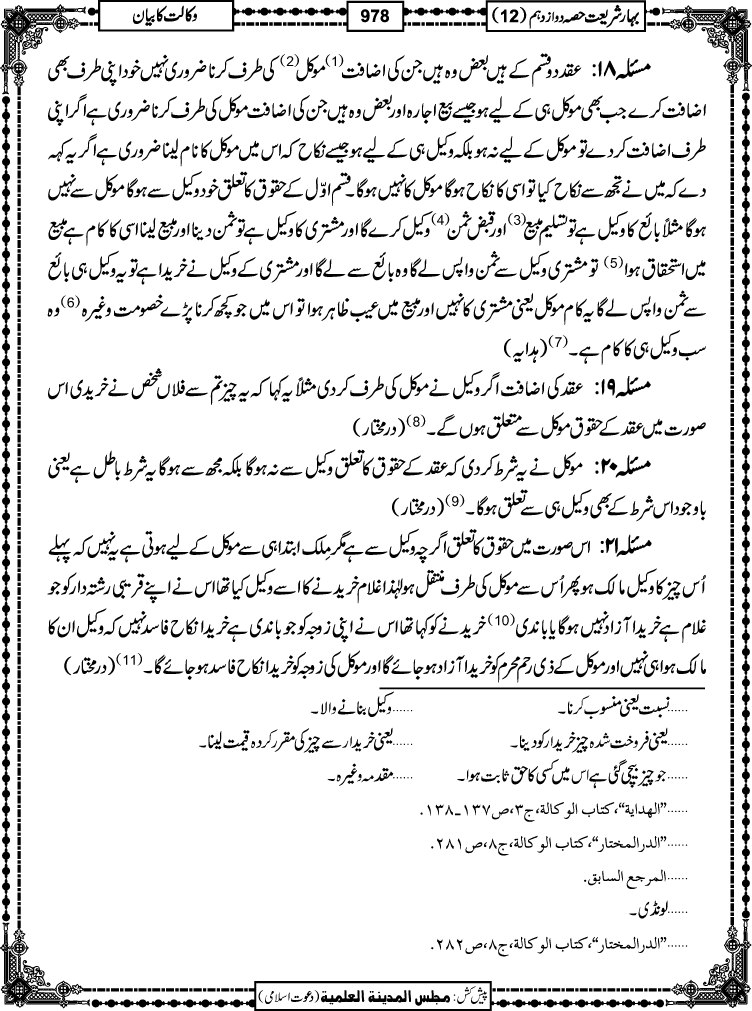 بہار شریعت حصہ دوازدہم (12)
978
وکالت کا بیان
مسئلہ ۱۸: عقد دو قسم کے ہیں بعض وہ ہیں جن کی اضافت(1) موکل(2) کی طرف کرنا ضروری نہیں خود اپنی طرف بھی
اضافت کرے جب بھی موکل ہی کے لیے ہو جیسے بیع اجارہ اور بعض وہ ہیں جن کی اضافت موکل کی طرف کرنا ضروری ہے اگر اپنی
طرف اضافت کردے تو موکل کے لیے نہ ہو بلکہ وکیل ہی کے لیے ہو جیسے نکاح کہ اس میں موکل کا نام لینا ضروری ہے اگر یہ کہہ
دے کہ میں نے تجھ سے نکاح کیا تو اسی کا نکاح ہوگا موکل کا نہیں ہوگا قسم اوّل کے حقوق کا تعلق خود وکیل سے ہوگا موکل سے نہیں
ہوگا مثلاً بائع کا وکیل ہے تو تسلیم مبیع(3) اور قبض ثمن(4) وکیل کرے گا اور مشتری کا وکیل ہے تو ثمن دینا اور مبیع لینا اسی کا کام ہے مبیع
میں استحقاق ہوا(5) تو مشتری وکیل سے ثمن واپس لے گا وہ بائع سے لے گا اور مشتری کے وکیل نے خریدا ہے تو یہ وکیل ہی بائع
سے ثمن واپس لے گا یہ کام موکل یعنی مشتری کا نہیں اور مبیع میں عیب ظاہر ہوا تو اس میں جو کچھ کرنا پڑے خصومت وغیرہ(6) وہ
سب وکیل ہی کا کام ہے۔(7) (ہدایہ)
مسئلہ ۱۹: عقد کی اضافت اگر وکیل نے موکل کی طرف کردی مثلاً یہ کہا کہ یہ چیز تم سے فلاں شخص نے خریدی اس
صورت میں عقد کے حقوق موکل سے متعلق ہوں گے۔(8) (درمختار)
مسئلہ ۲۰: موکل نے یہ شرط کردی کہ عقد کے حقوق کا تعلق وکیل سے نہ ہوگا بلکہ مجھ سے ہوگا یہ شرط باطل ہے یعنی
باوجود اس شرط کے بھی وکیل ہی سے تعلق ہوگا۔(9) (درمختار)
مسئلہ ۲۱: اس صورت میں حقوق کا تعلق اگرچہ وکیل سے ہے مگر مِلک ابتدا ہی سے موکل کے لیے ہوتی ہے یہ نہیں کہ پہلے
اُس چیز کا وکیل مالک ہو پھر اُس سے موکل کی طرف منتقل ہو لہٰذا غلام خریدنے کا اسے وکیل کیا تھا اس نے اپنے قریبی رشتہ دار کو جو
غلام ہے خریدا آزاد نہیں ہوگا یا باندی(10) خریدنے کو کہا تھا اس نے اپنی زوجہ کو جو باندی ہے خریدا نکاح فاسد نہیں کہ وکیل ان کا
مالک ہوا ہی نہیں اور موکل کے ذی رحم محرم کو خریدا آزاد ہو جائے گا اور موکل کی زوجہ کو خریدا نکاح فاسد ہو جائے گا۔(11) (درمختار)
......نسبت یعنی منسوب کرنا۔ ......وکیل بنانے والا۔
......یعنی فروخت شدہ چیز خریدار کو دینا۔ ......یعنی خریدار سے چیز کی مقرر کردہ قیمت لینا۔
......جو چیز بیچی گئی ہے اس میں کسی کا حق ثابت ہوا۔ ......مقدمہ وغیرہ۔
......"الھدایة"،کتاب الوکالة،ج۳،ص۱۳۷۔۱۳۸.
......"الدرالمختار"،کتاب الوکالة،ج۸،ص۲۸۱.
......المرجع السابق.
......لونڈی۔
......"الدرالمختار"،کتاب الوکالة،ج۸،ص۲۸۲.
پیش کش: مجلس المدینة العلمیة (دعوت اسلامی)